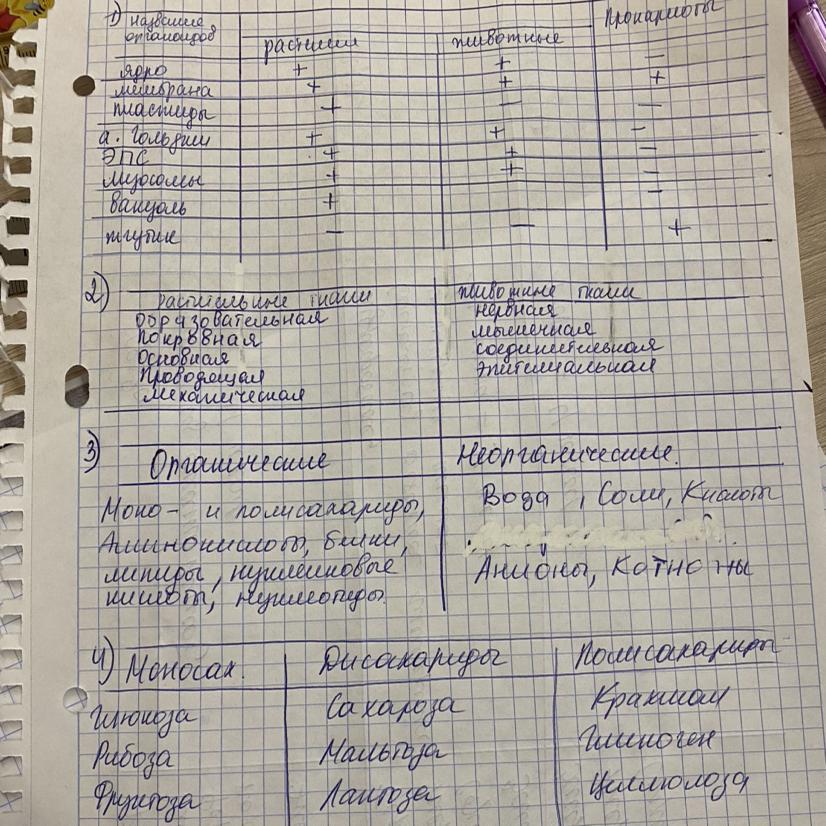 1) название Прокариоты
органоидов растения животные
ядро + + —
мембрана + + +
пластиды + — —
а. Гольджи + + —
ЭПС + + —
лизосомы + + —
вакуоль + —
жгутик — — +
2) растительные ткани животные ткани
образовательная нервная
покрывная мышечная
основная соединительная
проводящая эпителиальная
механическая
3) Органические Неорганические.
Моно- и полисахариды, Вода, Соли, Кислоты
Аминокислоты, белки,
липиды, нуклеиновые Анионы, Катионы
кислоты, нуклеотиды.
4) Моносах. Дисахариды Полисахариды
Глюкоза Сахароза Крахмал
Рибоза Мальтоза Гликоген
Фруктоза Лактоза Целлюлоза